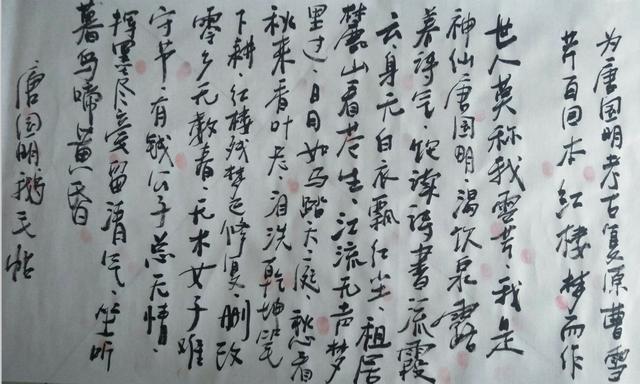 为唐国明考古复原曹雪
芹百回本红楼梦而作
世人莫称我雪芹、我是
神仙唐国明、渴饮泉露
慕诗气、饱读诗书流霞
云、身无白衣飘红尘、租居
麓山看苍生、江流无声梦
里过、日日如马踏天庭、愁看
秋来香叶老、泪洗乾坤笔
下耕、红楼残梦已修复、删改
零乡无数春、无木女子难
守节、有钱公子总无情、
挥墨尽留清气、坐听
暮鸟啼黄昏
唐国明鹅毛帖